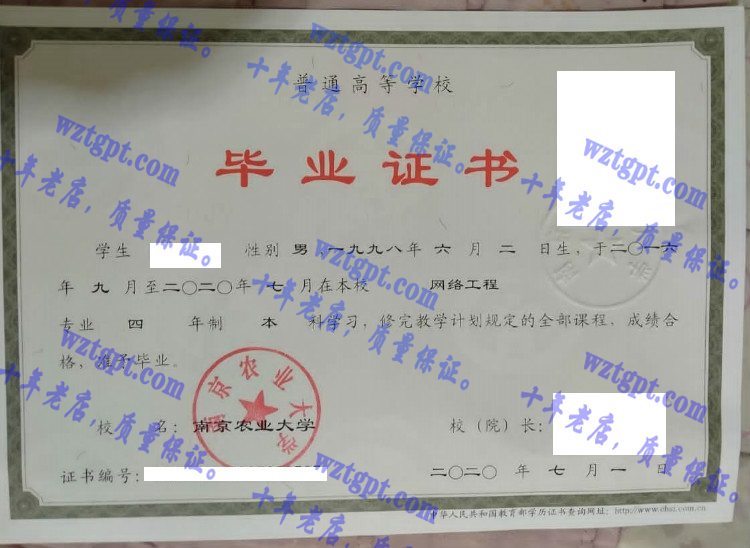 普通高等学校
毕业证书
学生 性别 男 一九九八年 六 月 二 日生，于二〇一六
年 九 月至二〇二〇年 七 月在本校 网络工程
专业 四 年制 本 科学习，修完教学计划规定的全部课程，成绩合
格，准予毕业。
南京农业大学
校 名：南京农业大学 校（院）长：
证书编号： 二〇二〇 年 七 月 一 日
中华人民共和国教育部学历证书查询网址：http://www.chsi.com.cn
wztgpt.com
十年老店，质量保证。
wztgpt.com
十年老店，质量保证。
wztgpt.com
十年老店，质量保证。
wztgpt.com
十年老店，质量保证。
wztgpt.com
十年老店，质量保证。
wztgpt.com
十年老店，质量保证。
wztgpt.com
十年老店，质量保证。
wztgpt.com
十年老店，质量保证。
wztgpt.com
十年老店，质量保证。